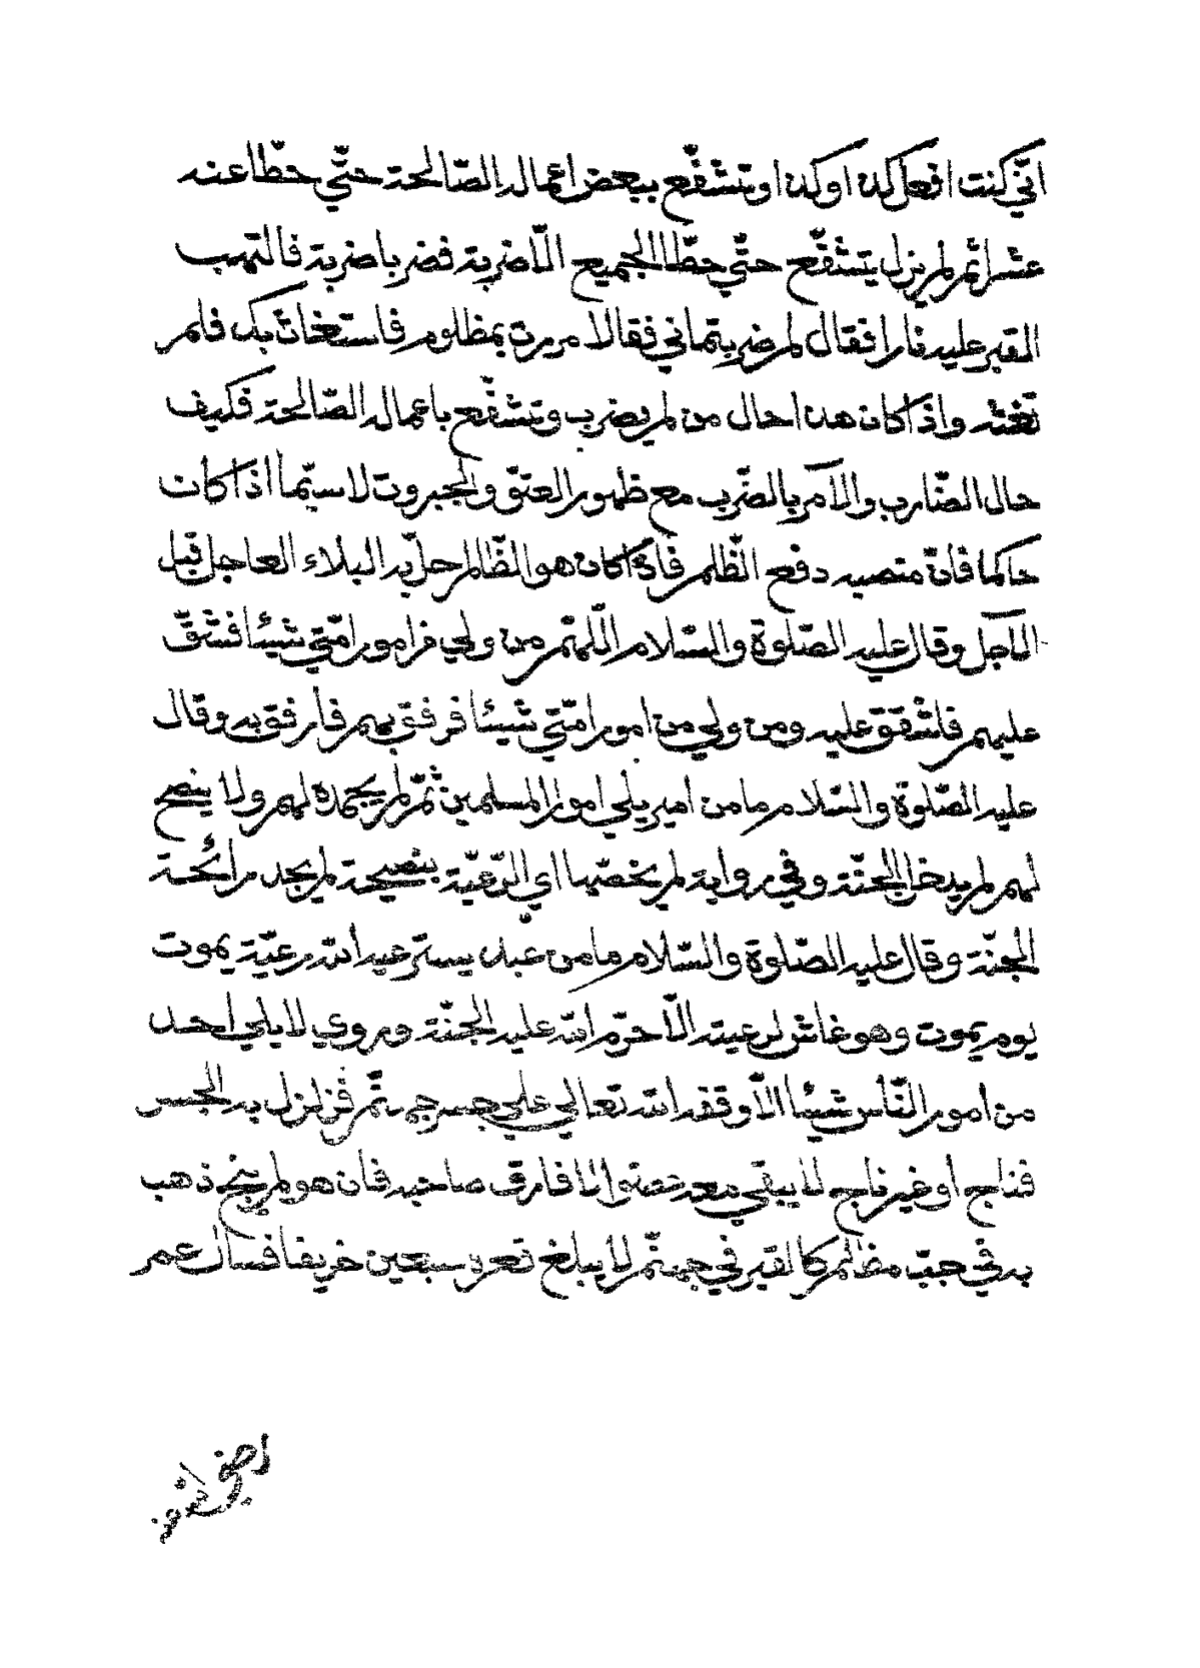 انّي كنت افعل كذا وكذا وتشفّع ببعض اعماله الصّالحة حتّي حطّا عنه
عشرا ثم لم يزل يتشفّع حتّي حطّا الجميع الّا ضربة فضرباه ضربة فالتهب
القبر عليه نارا فقال لم ضربتماني فقالا مررت بمظلوم فاستغاث بك فلم
تغثه واذا كان هذا حال من لم يضرب وتشفّع باعماله الصّالحة فكيف
حال الضّارب والآمر بالضّرب مع ظهور العتوّ والجبروت لا سيّما اذا كان
حاكما فانّ منصبه دفع الظّلم فاذا كان هو الظّالم حلّ به البلاء العاجل قبل
الآجل وقال عليه الصّلوة والسّلام اللّهمّ من ولي من امور امّتي شيئا فشقّ
عليهم فاشقق عليه ومن ولي من امور امّتي شيئا فرفق بهم فارفق به وقال
عليه الصّلوة والسّلام ما من امير يلي امور المسلمين ثمّ لم يجهد لهم ولا ينصح
لهم لم يدخل الجنّة وفي رواية لم يخصّها اي الرّعيّة بنصيحة لم يجد رائحة
الجنّة وقال عليه الصّلوة والسّلام ما من عبد يسترعيه الله رعيّة يموت
يوم يموت وهو غاش لرعيته الّا حرّم الله عليه الجنّة وروي لا يلي احد
من امور النّاس شيئا الّا وقفه الله تعالي علي جسر جهنّم فزلزل به الجسر
فناج أو غير ناج لا يبقي معه عضو الا فارق صاحبه فان هو لم ينج ذهب
به في جبّ مظلم كالقبر في جهنّم لا يبلغ قعره سبعين خريفا فسال عمر